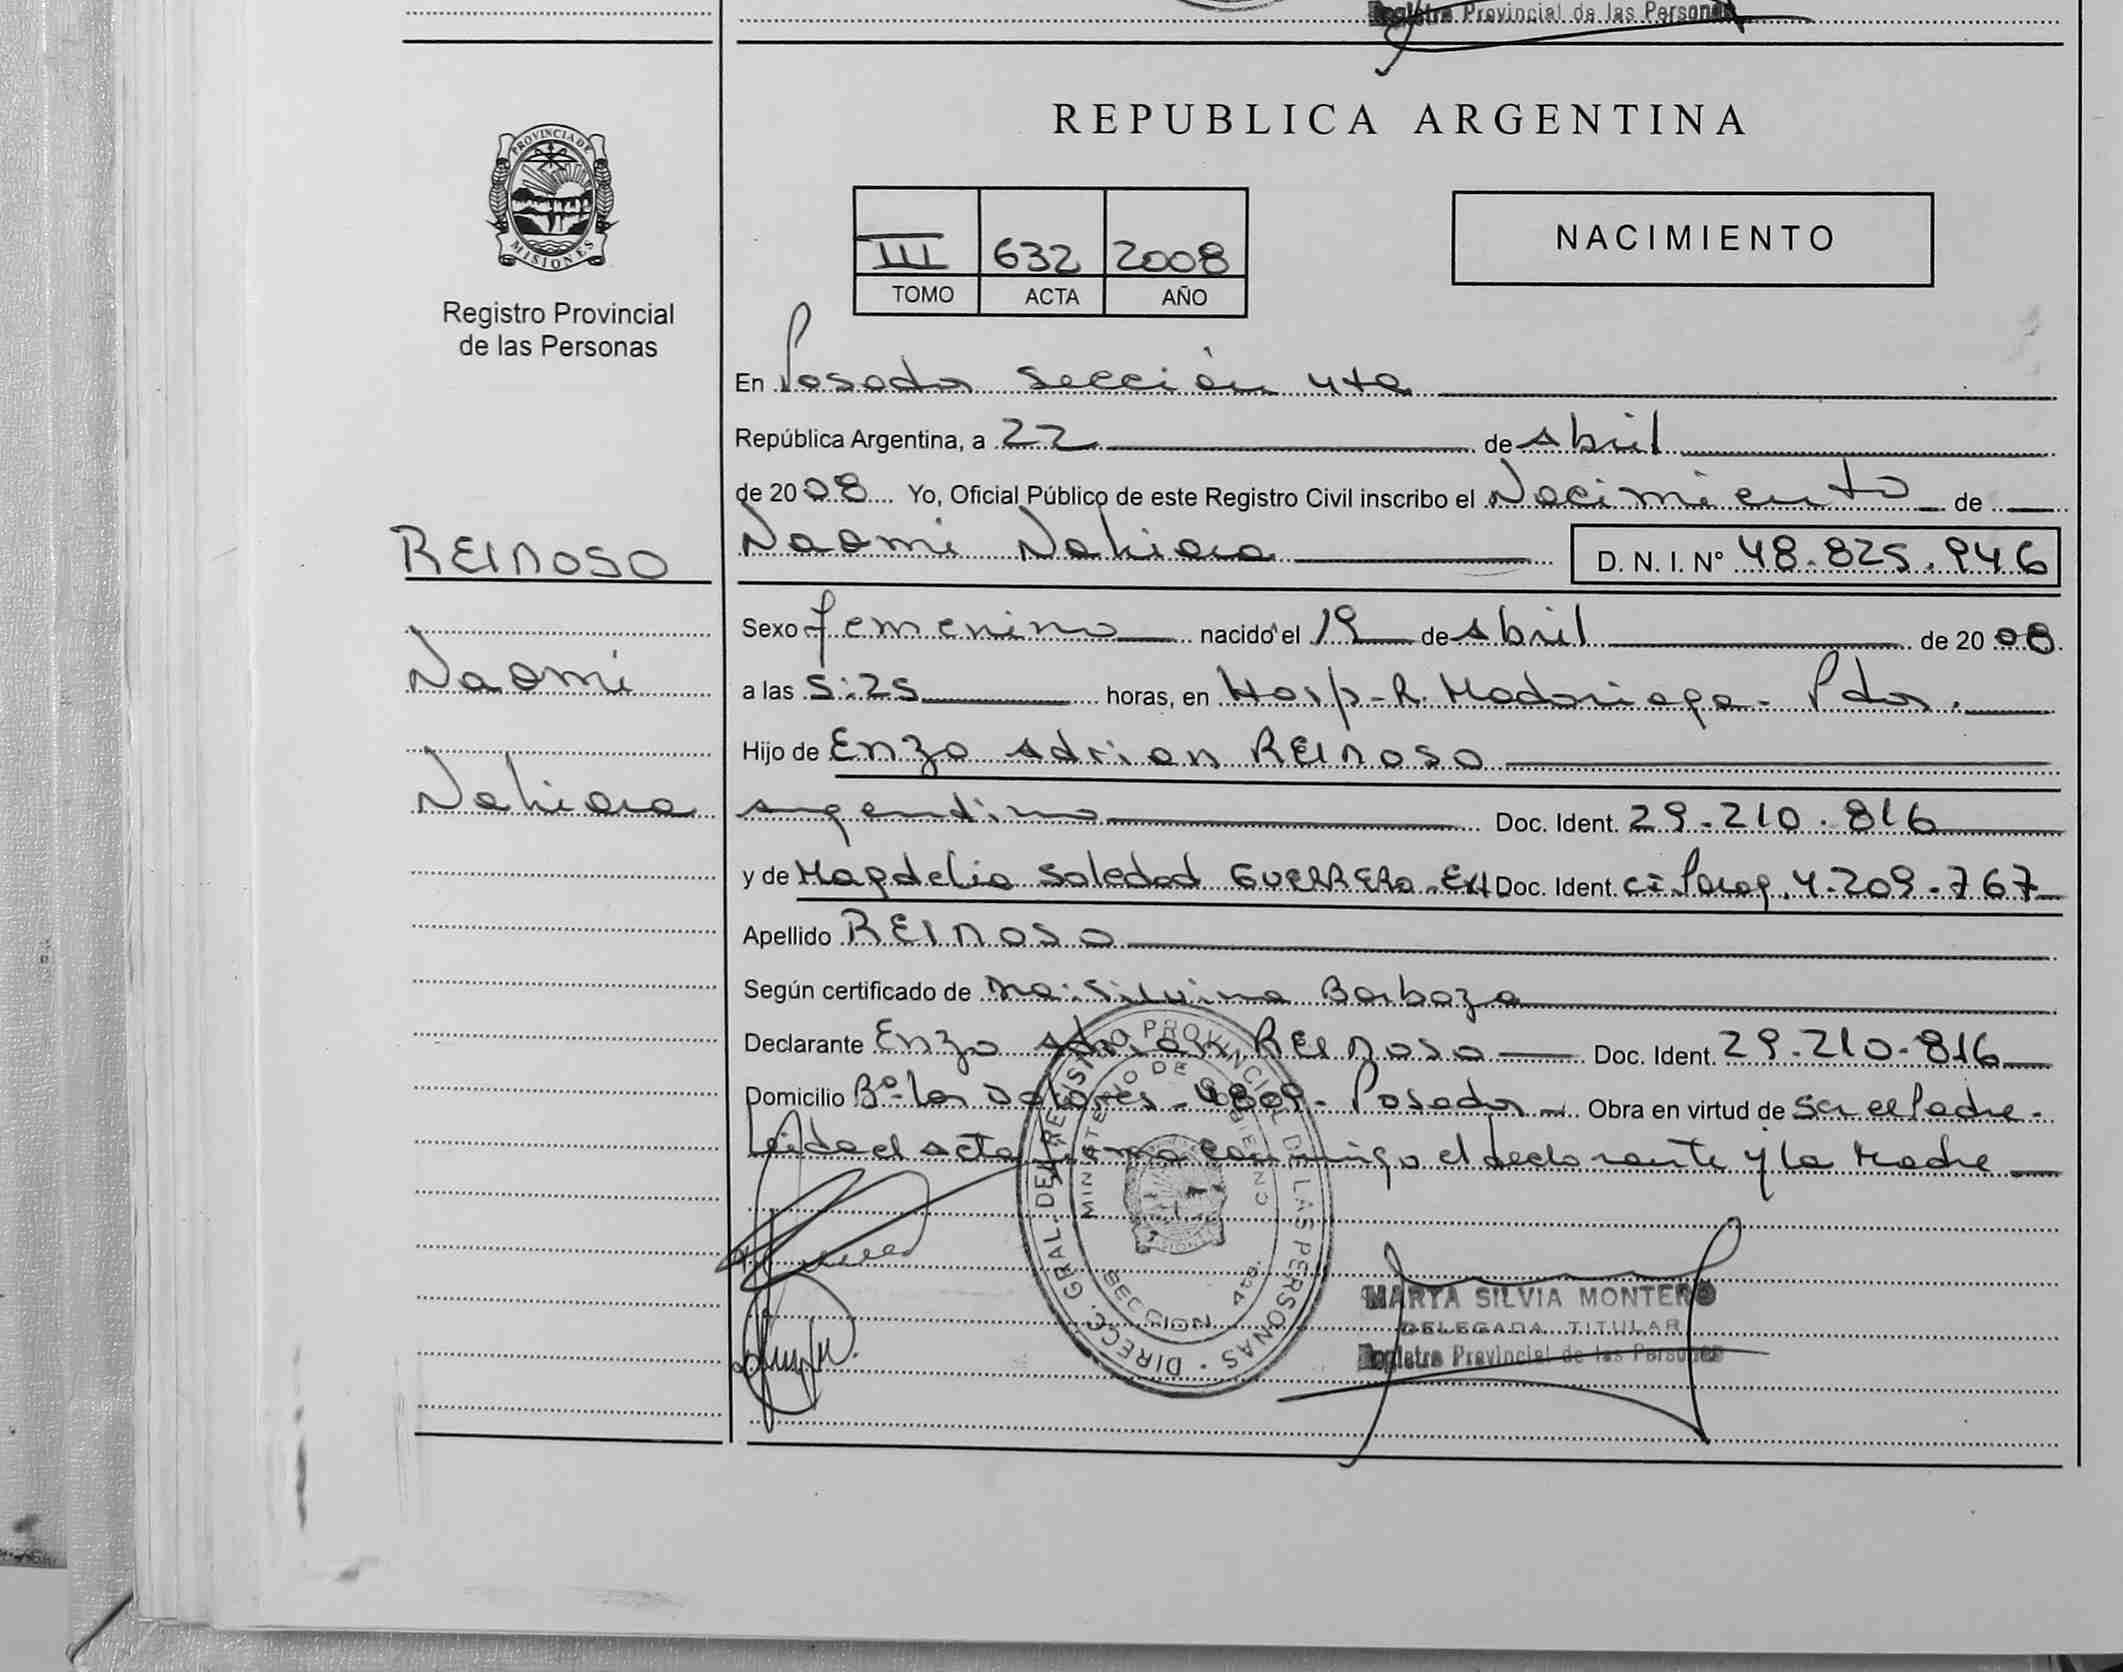 Registro Provincial de las Personas
PROVINCIA DE
MISIONES
Registro Provincial
de las Personas
REPUBLICA ARGENTINA
III 632 2008
TOMO ACTA AÑO
NACIMIENTO
En Posadas sección 4ta
República Argentina, a 22 de Abril
de 2008 Yo, Oficial Público de este Registro Civil inscribo el Nacimiento de
REINOSO
Naomi Nahiara D. N. I. Nº 48.825.946
Sexo femenino nacido el 19 de Abril de 2008
Naomi
a las 5:25 horas, en Hosp-R. Madariaga- Pdas.
Hijo de Enzo Adrian REINOSO
Nahiara
argentino Doc. Ident. 29.210.816
y de Magdelia Soledad GUERRERO-Ext Doc. Ident. ci. Parag. 4.209.767
Apellido REINOSO
Según certificado de Ma. Silvina Barboza
Declarante Enzo Adrian REINOSO Doc. Ident. 29.210.816
Domicilio Bº Los - 4809- Posadas Obra en virtud de ser el Padre.
Leida el acta firma conmigo el declarante y la Madre
DIRECC. GRAL. DEL REGISTRO PROVINCIAL DE LAS PERSONAS
MINISTERIO DE GOBIERNO
SECCION 4ta.
MARTA SILVIA MONTERO
DELEGADA TITULAR
Registro Provincial de las Personas